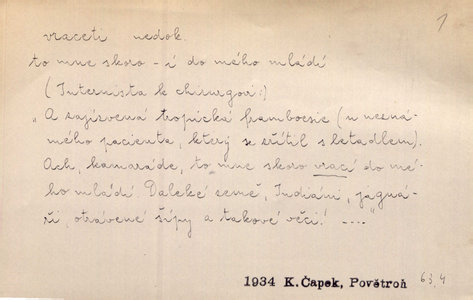 1
vraceti nedok.
to mne skoro – i do mého mládí
(Internista k chirurgovi:)
„A zajizvená tropická framboesie (u nezná-
mého pacienta, který se zřítil s letadlem).
Ach, kamaráde, to mne skoro vrací do mé-
ho mládí. Daleké země, Indiáni, jaguá-
ři, otrávené šípy a takové věci! ....“
1934 K. Čapek, Povětroň 63,4